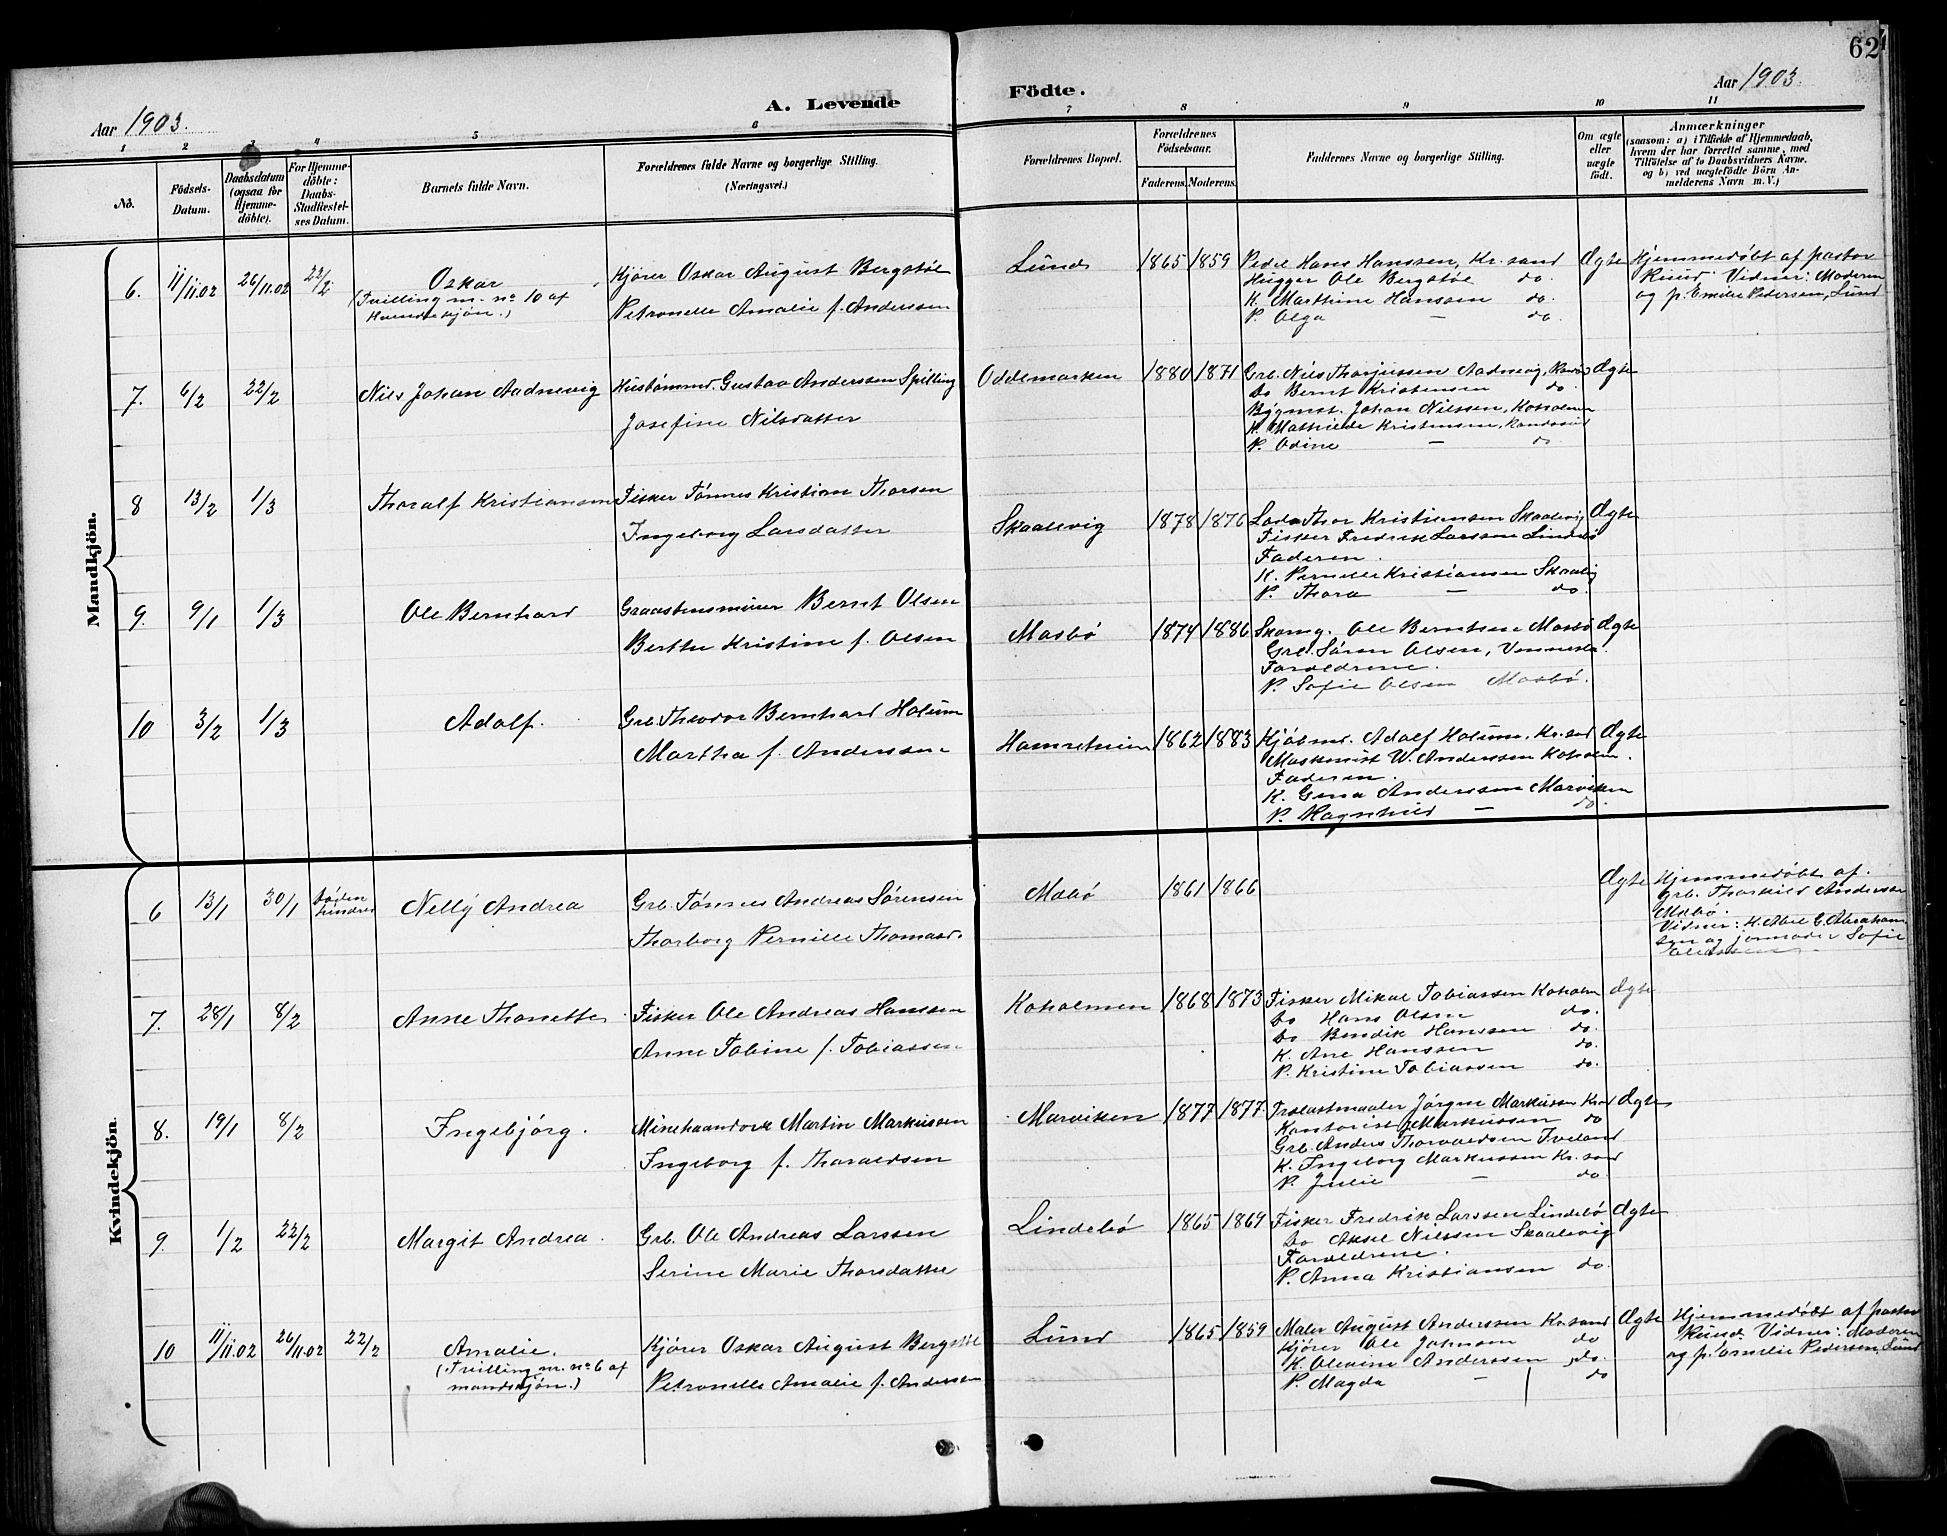 62
Aar 1903.
A. Levende
Födte.
Aar 1903.
1 2 3 4 5 6 7 8 9 10 11
No.
Födsels-
Datum.
Daabsdatum
(ogsaa for
Hjemme-
döbte).
For Hjemme-
döbte:
Daabs-
Stadfæstel-
ses Datum.
Barnets fulde Navn.
Forældrenes fulde Navne og borgerlige Stilling.
(Næringsvei.)
Forældrenes Bopæl.
Forældrenes
Födselsaar.
Faderens. Moderens.
Faddernes Navne og borgerlige Stilling.
Om ægte
eller
uægte
født.
Anmærkninger
(saasom: a) i Tilfælde af Hjemmedaab,
hvem der har forrettet samme, med
Tilföielse af to Daabsvidners Navne.
og b) ved uægtefödte Börn An-
melderens Navn m. V.)
Mandkjön.
6. 11/11.02 26/11.02 22/2 Oskar
(Tvilling m. no 10 af
Kvindekjøn.)
Kjører Oskar August Bergstøl
Petronelle Amalie f. Andersen
Lund 1865 1859
Pedel Hans Hanssen, Kr.sand
Hugger Ole Bergstøe do.
K. Marthine Hanssen do.
P. Olga — do.
Ægte
Hjemmedøbt af pastor
Ruud. Vidner: Moderen
og p. Emilie Pedersen, Lund
7. 6/2 22/2 Nils Johan Aadnevig
Hustømmd. Gustav Anderssen Spilling
Josefine Nilsdatter
Oddemarken 1880 1871
Grb. Nils Thorjussen Aadnevig, Rands
Do Bernt Kristensen do.
Bygmst. Johan Nilssen, Koholmen
K. Mathilde Kristensen, Randøsund
P. Odine — do
Ægte
8 13/2 1/3 Thoralf Kristiansen
Fisker Tönnes Kristian Thorsen
Ingeborg Larsdatter
Skaalevig 1878 1876
Lods Thor Kristiansen Skaalevig
Fisker Fredrik Larssen Lindebø
Faderen.
K. Pernelle Kristiansen Skaalvig
P. Thora — do.
Ægte
9. 9/1 1/3 Ole Bernhard
Graastensmurer Bernt Olsen
Berthe Kristine f. Olsen
Mosbö 1874 1886
Skomg. Ole Berntsen Mosbö
Grb. Sören Olsen, Vennesla.
Forældrene.
P. Sofie Olsen Mosbö.
Ægte
10 3/2 1/3 Adolf.
Grb. Theodor Bernhard Holum
Martha f. Anderssen
Hamretuen 1862 1883
Kjöbmd. Adolf Holum, Kr.sand
Maskinist W. Anderssen Koholm.
Faderen.
K. Gina Anderssen Marviken
P. Ragnhild — do.
Ægte
Kvindekjön.
6 13/1 30/1 Døden
hindret Nelly Andrea
Grb. Tönnes Andreas Sørensen
Thorborg Pernille Thomasd.
Mebø 1861 1866
Ægte
Hjemmedøbt af.
Grb. Thorkild Andersen
Mebø.
Vidner: K. Abel G. Abraham
sen og jormoder Sofie
7. 28/1 8/2 Anne Thonette
Fisker Ole Andreas Hanssen
Anne Tobine f. Tobiassen
Koholmen 1868 1873
Fisker Mikal Tobiassen Koholm
Do Hans Olsen do.
Do Bendik Hanssen do.
K. Ane Hanssen do.
P. Kristine Tobiassen do.
Ægte
8. 19/1 8/2 Ingebjörg.
Martin Markussen
Ingeborg f. Thoraldsen
Marviken 1877 1877.
Jörgen Markussen Krsd
Kontorist Markussen do
Grb. Anders Thorvaldsen Iveland
K. Ingeborg Markussen Kr.sand
P. Julie — do.
Ægte
9. 1/2 22/2 Margit Andrea.
Grb. Ole Andreas Larssen
Serine Marie Thorsdatter
Lindebø 1865 1869
Fisker Fredrik Larssen Lindebø
Do Aksel Nielssen Skaalevig
Forældrene.
P. Anna Kristiansen do.
Ægte
10 11/11.02 26/11.02 22/2 Amalie.
(Tvilling m. no 6 af
mandskjøn.)
Kjører Oskar August Bergstøl
Petronelle Amalie f. Andersen
Lund 1865 1859
Maler August Anderssen Kr.sand
Kjører Ole Johnsen do
K. Olevine Anderssen do.
P. Magda — do
Ægte
Hjemmedøbt af pastor
Ruud. Vidner: Moderen
og p. Emilie Pedersen, Lund